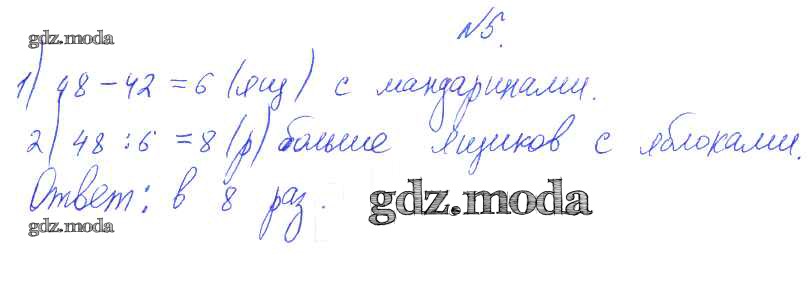 №5.
gdz.moda
1) 48 - 42 = 6 (ящ) с мандаринами.
2) 48 : 6 = 8 (р) больше ящиков с яблоками.
Ответ: в 8 раз.
gdz.moda
gdz.moda